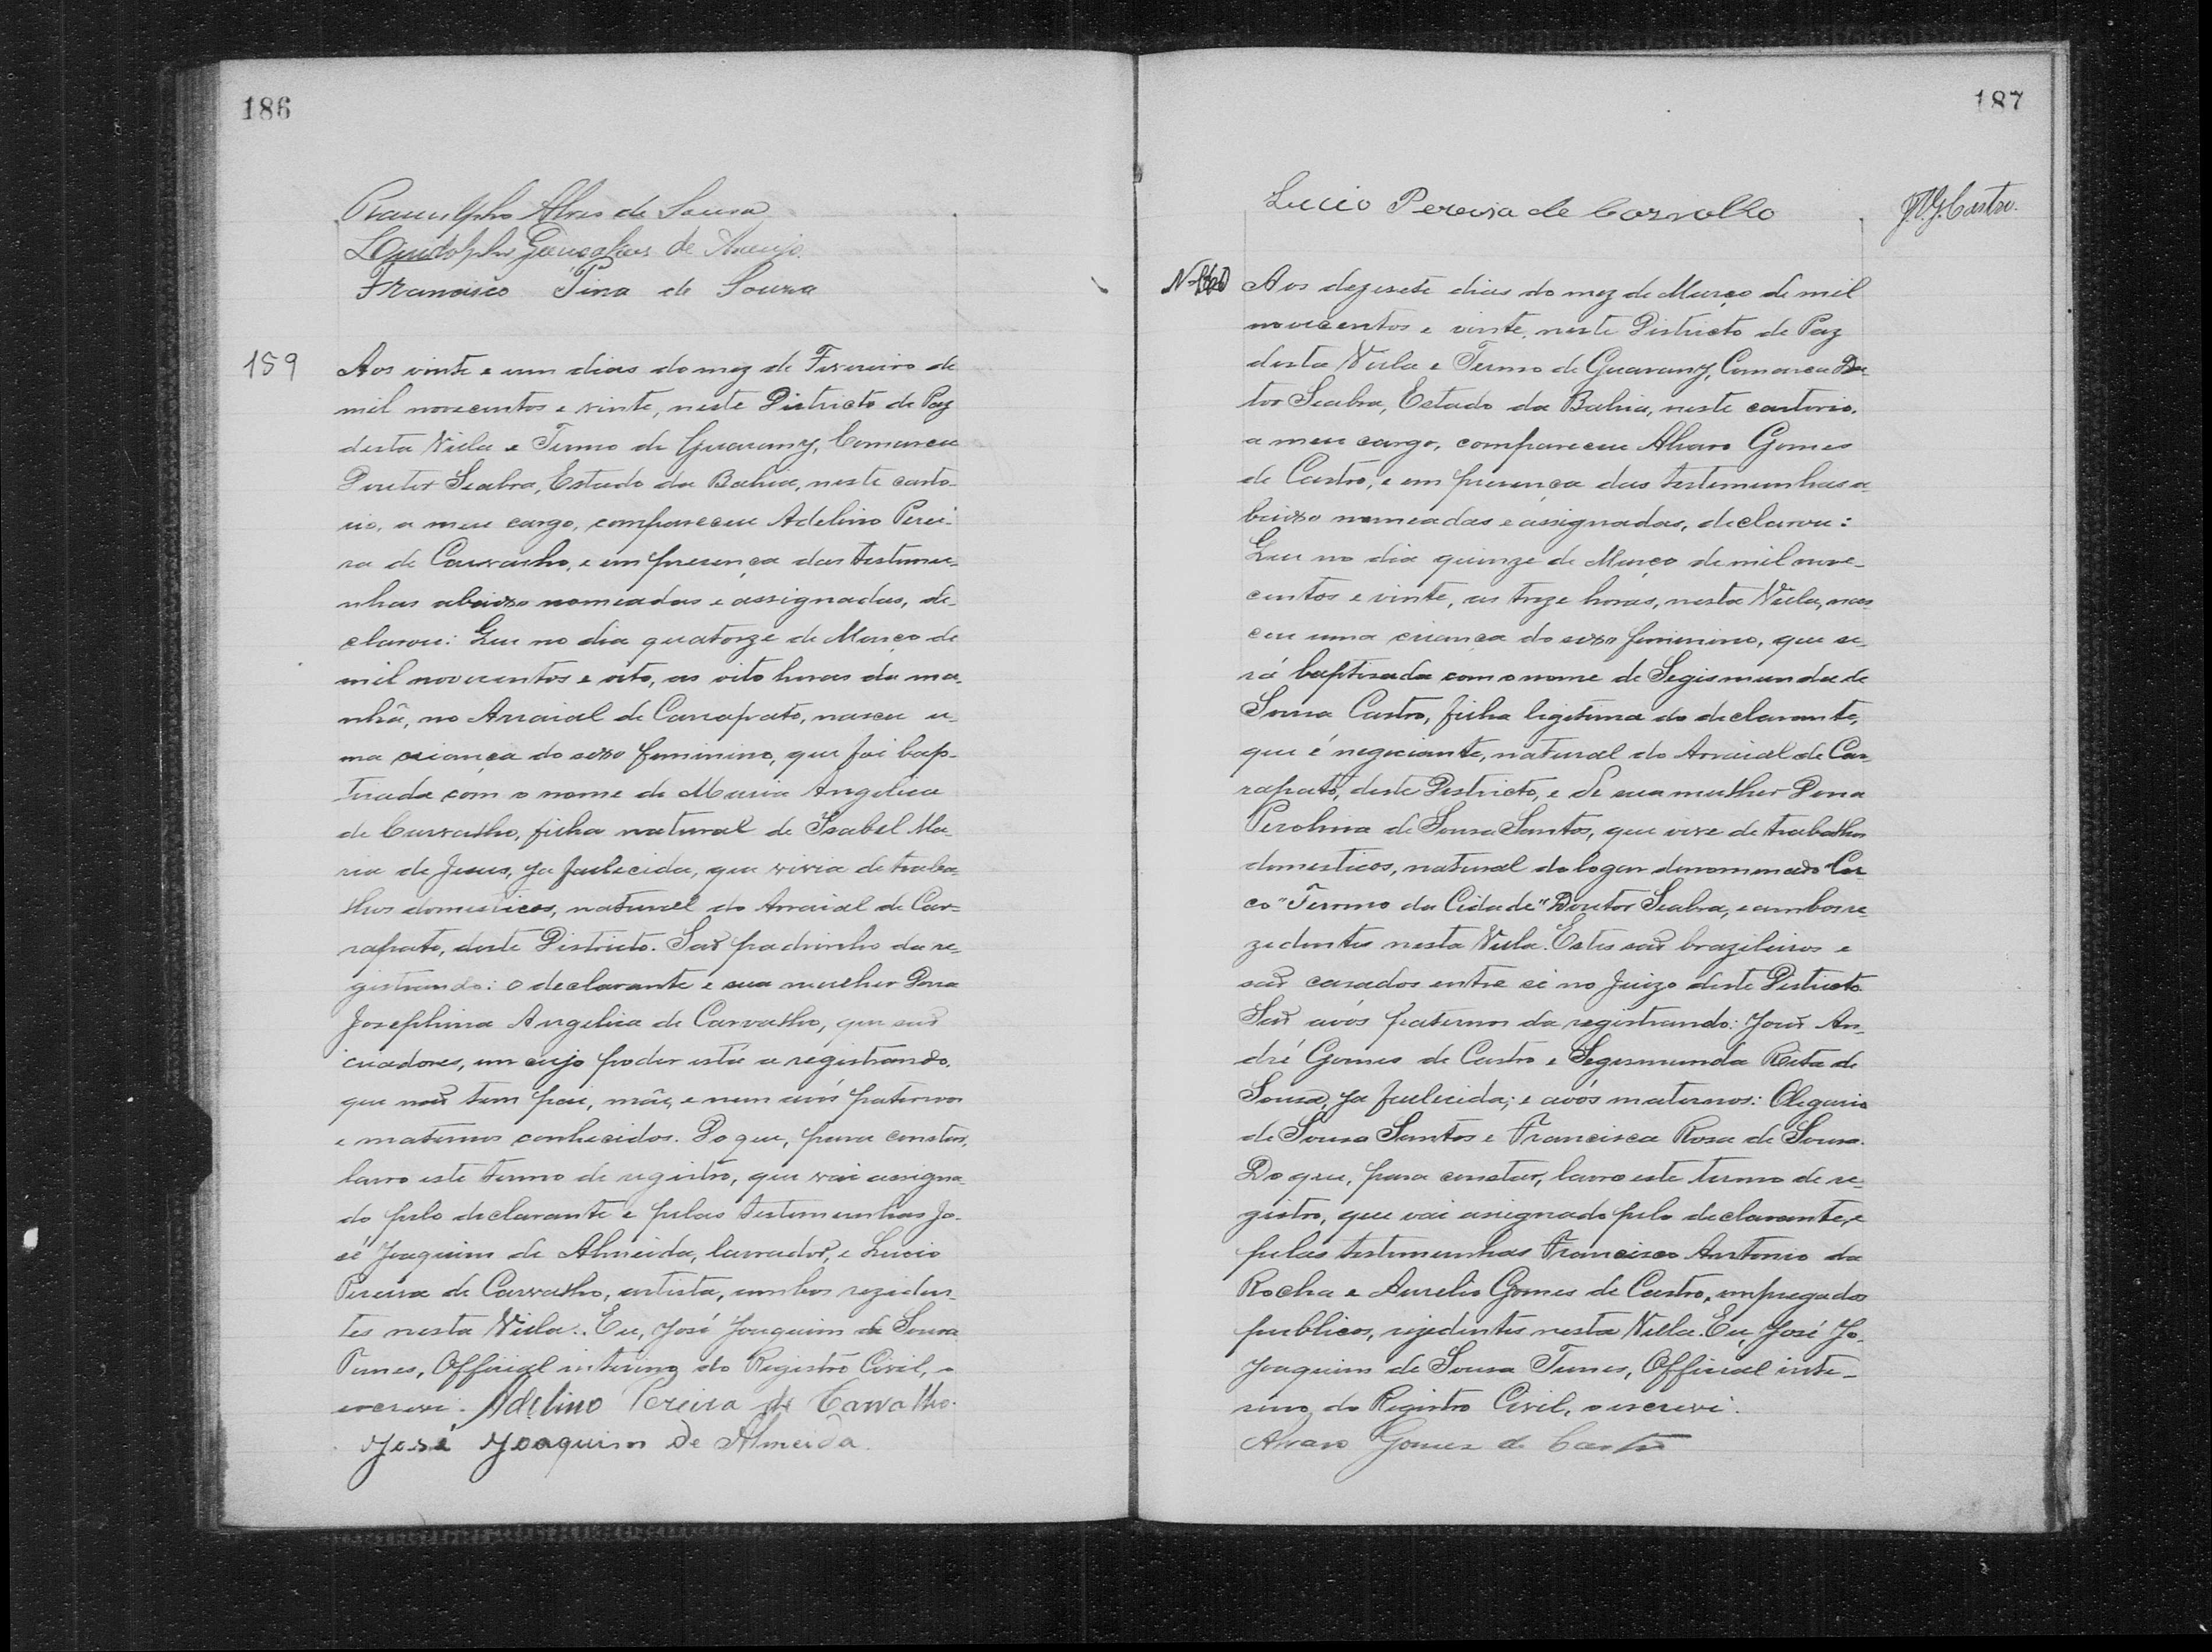 186
Ranulpho Alves de Sousa
Landolpho Gonçalves de Araujo.
Francisco Pina de Souza
159
Aos vinte e um dias do mez de Fevereiro de
mil novecentos e vinte, neste Districto de Paz
desta Villa e Termo de Guarany, Comarca
Doutor Seabra, Estado da Bahia, neste carto-
rio, a meu cargo, compareceu Adelino Perei-
ra de Carvalho, e em presença das testemu-
nhas abaixo nomeadas e assignadas, de-
clarou: Que no dia quatorze de Março de
mil novecentos e oito, as oito horas da ma-
nhã, no Arraial de Carrapato, nasceu u-
ma criança do sexo feminino, que foi bap-
tisada com o nome de Maria Angelica
de Carvalho, filha natural de Isabel Ma-
ria de Jesus, ja fallecida, que vivia de traba-
lhos domesticos, natural do Arraial de Car-
rapato, deste Districto. Saõ padrinho da re-
gistrando: o declarante e sua mulher Dona
Josephina Angelica de Carvalho, que saõ
criadores, em cujo poder está a registrando,
que naõ tem pai, mãe, e nem avós paternos
e maternos conhecidos. Do que, para constar,
lavro este termo de registro, que vai assigna-
do pelo declarante e pelas testemunhas Jo-
sé Joaquim de Almeida, lavrador, e Lucio
Pereira de Carvalho, artista, ambos reziden-
tes nesta Villa. Eu, José Joaquim de Sousa
Tunes, Official interino do Registro Civil, o
escrevi. Adelino Pereira de Carvalho.
José Joaquim de Almeida.
187
Lucio Pereira de Carvalho
Nº 160
Aos dezesete dias do mez de Março de mil
novecentos e vinte, neste Districto de Paz
desta Villa e Termo de Guarany, Comarca Dou-
tor Seabra, Estado da Bahia, neste cartorio,
a meu cargo, compareceu Alvaro Gomes
de Castro, e em presença das testemunhas a-
baixo nomeadas e assignadas, declarou:
Que no dia quinze de Março de mil nove-
centos e vinte, as treze horas, nesta Villa, nas-
ceu uma criança do sexo feminino, que se-
rá baptisada com o nome de Segismunda de
Sousa Castro, filha ligitima do declarante,
que é negociante, natural do Arraial de Car-
rapato, deste Districto, e de sua mulher Dona
Perolina de Sousa Santos, que vive de trabalhos
domesticos, natural do logar denominado "Cor-
co" Termo da Cidade "Doutor Seabra, e ambos re-
zidentes nesta Villa. Estes saõ brazileiros e
saõ casados entre si no Juizo deste Districto.
Saõ avós paternos da registrando: Joaõ An-
dré Gomes de Castro e Segismunda Rita de
Sousa, ja fallecida; e avós maternos: Olegario
de Sousa Santos e Francisca Rosa de Sousa.
Do que, para constar, lavro este termo de re-
gistro, que vai asignado pelo declarante, e
pelas testemunhas Francisco Antonio da
Rocha e Aurelio Gomes de Castro, empregados
publicos, rezidentes nesta Villa. Eu, José Jo-
Joaquim de Sousa Tunes, Official inte-
rino do Registro Civil, o escrevi.
Alvaro Gomes de Castro